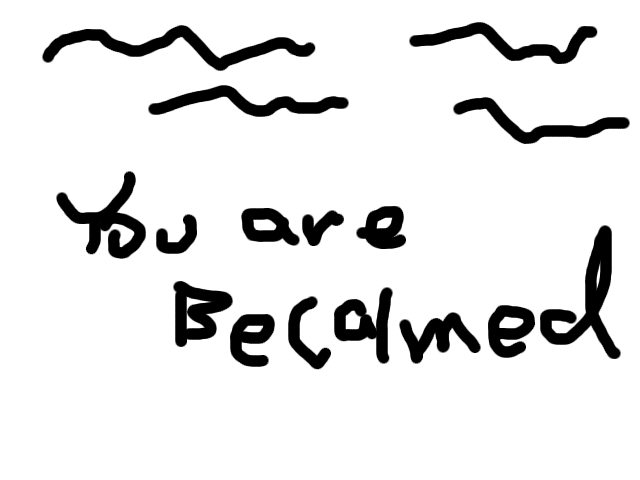 You are
Becalmed